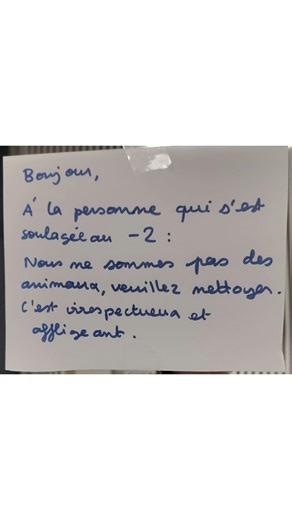 Bonjour,
À la personne qui s'est
soulagée au -2 :
Nous ne sommes pas des
animaux, veuillez nettoyer.
C'est irrespectueux et
affligeant.